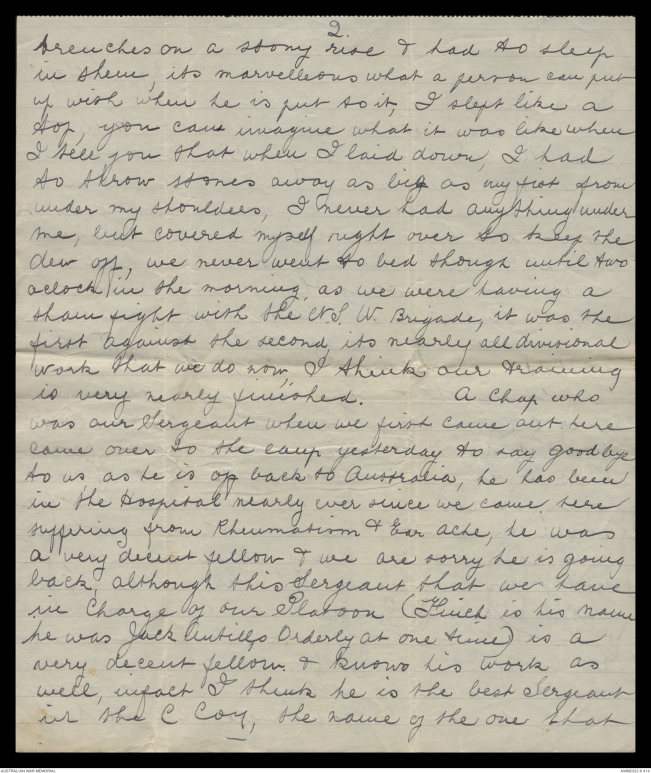 2.
trenches on a stony rise & had to sleep
in them, its marvelleous what a person can put
up with when he is put to it, I slept like a
top, you can imagine what it was like when
I tell you that when I laid down, I had
to throw stones away as big as my fist from
under my shoulders, I never had anything under
me, but covered myself right over to keep the
dew off, we never went to bed though until two
oclock in the morning, as we were having a
sham fight with the N.S.W. Brigade, it was the
first against the second, its nearly all divisional
work that we do now, I think our training
is very nearly finished. A chap who
was our Sergeant when we first came out here
came over to the camp yesterday to say good bye
to us as he is off back to Australia, he has been
in the Hospital nearly ever since we came here
suffering from Rheumatism & Ear ache, he was
a very decent fellow & we are sorry he is going
back, although this Sergeant that we have
in charge of our Platoon (Finch is his name
he was Jack Antills Orderly at one time) is a
very decent fellow & knows his work as
well, infact I think he is the best Sergeant
in the C Coy, the name of the one that
AUSTRALIAN WAR MEMORIAL